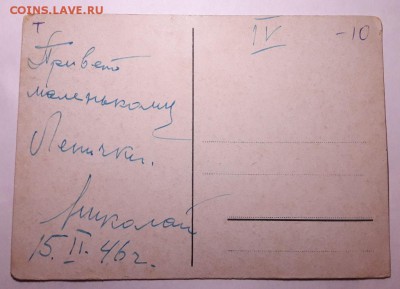 COINS.LAVE.RU
т
IV
-10
Привет
маленькому
Леничке.
Николай
15.II.46 г.